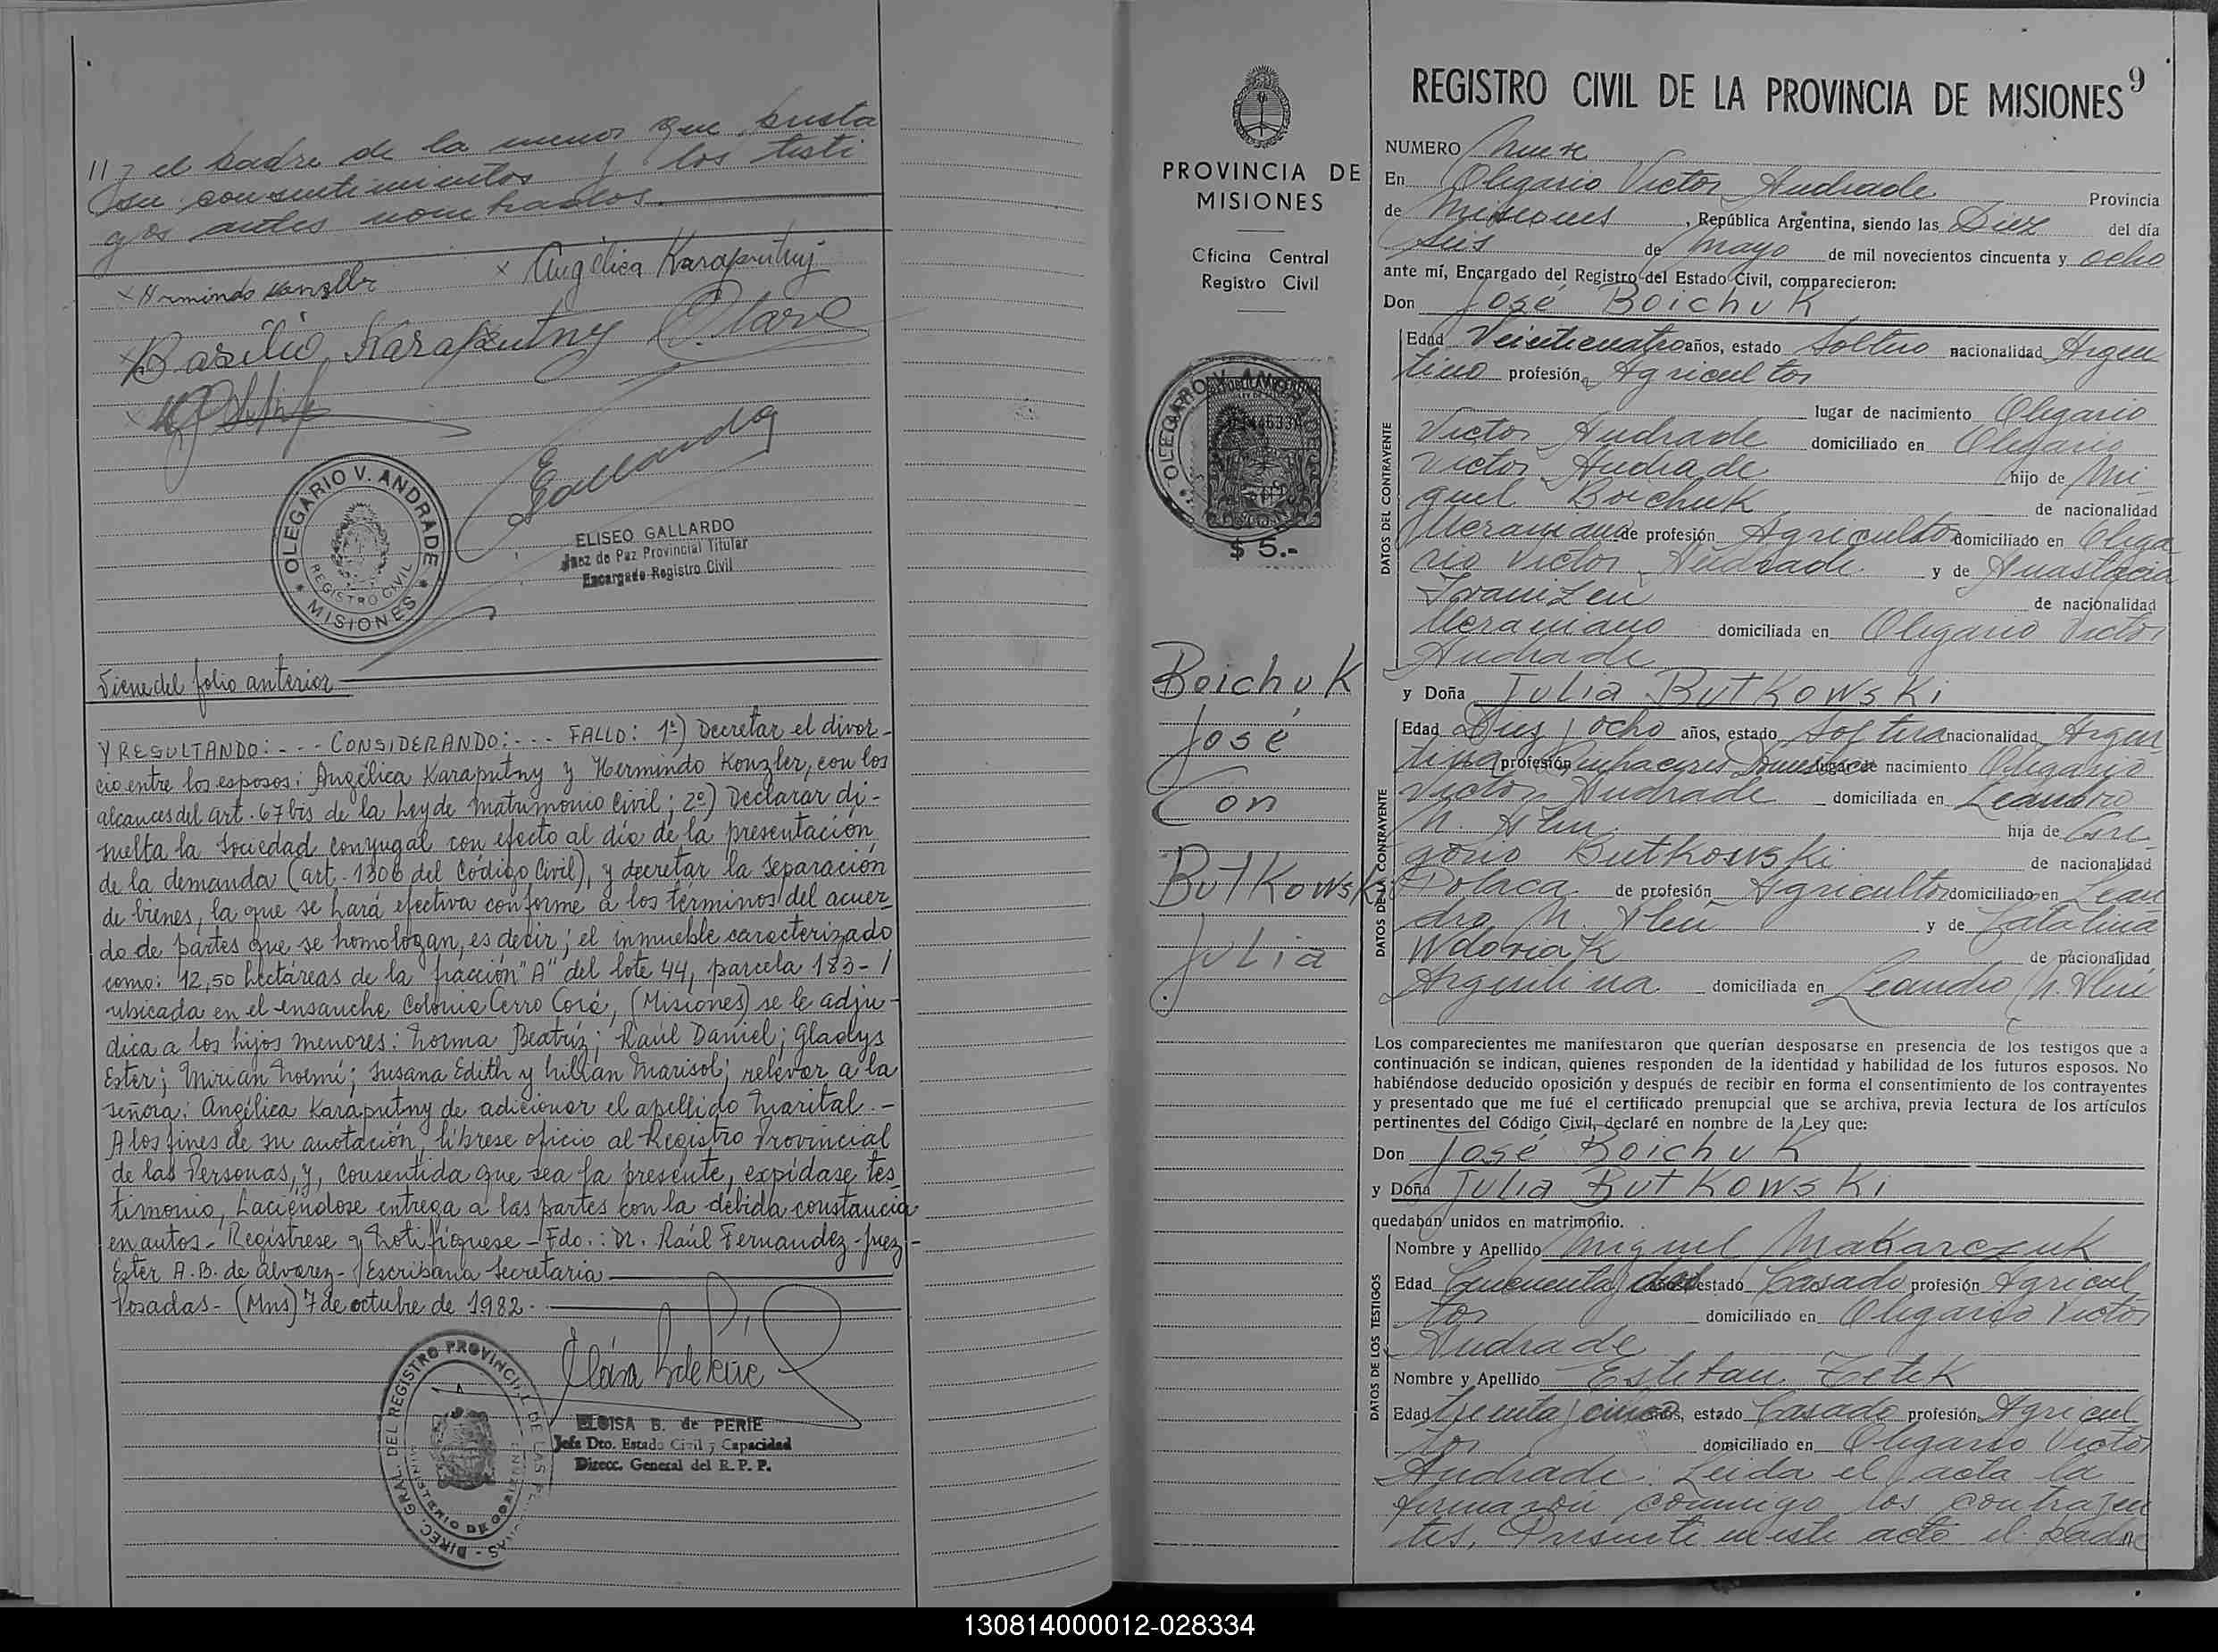 // y el padre de la menor que presta
su consentimientos y los testi
gos antes nombrados.
x Hermindo Konzler x Angélica Karaputnyj
x Basilio Karaputny
ELISEO GALLARDO
Juez de Paz Provincial Titular
Encargado Registro Civil
OLEGARIO V. ANDRADE
REGISTRO CIVIL
* MISIONES *
Viene del folio anterior
Y RESULTANDO: - - - CONSIDERANDO: - - - FALLO: 1º) Decretar el divor-
cio entre los esposos: Angélica Karaputny y Hermindo Konzler, con los
alcances del art. 67 bis de la Ley de Matrimonio Civil; 2º) Declarar di-
suelta la sociedad conyugal con efecto al día de la presentación
de la demanda (art. 1306 del Código Civil), y decretar la separación
de bienes, la que se hará efectiva conforme a los términos del acuer
do de partes que se homologan, es decir; el inmueble caracterizado
como: 12,50 hectáreas de la fracción "A" del lote 44, parcela 183- /
ubicada en el ensanche Colonia Cerro Corá, (Misiones) se le adju-
dica a los hijos menores: Norma Beatríz; Raúl Daniel; Gladys
Ester; Mirian Noemí; Susana Edith y Lillian Marisol; relevar a la
señora: Angélica Karaputny de adicionar el apellido marital.-
A los fines de su anotación, líbrese oficio al Registro Provincial
de las Personas, y, consentida que sea la presente, expídase tes
timonio, haciéndose entrega a las partes con la debida constancia
en autos- Regístrese y Notifíquese- Fdo.: Dr. Raúl Fernandez- Juez-
Ester A.B. de Alvarez- Escribana Secretaria
Posadas- (Mns) 7 de octubre de 1982.-
ELOISA B. de PERIE
Jefa Dto. Estado Civil y Capacidad
Direcc. General del R. P. P.
DIREC. GRAL. DEL REGISTRO PROVINCIAL DE LAS PERSONAS
MINISTERIO DE GOBIERNO
PROVINCIA DE
MISIONES
Oficina Central
Registro Civil
OLEGARIO V. ANDRADE
$ 5.-
Boichuk
José
Con
Butkowski
Julia
REGISTRO CIVIL DE LA PROVINCIA DE MISIONES 9
NUMERO Nueve
En Olegario Victor Andrade Provincia
de Misiones, República Argentina, siendo las Diez del día
Seis de Mayo de mil novecientos cincuenta y ocho
ante mí, Encargado del Registro del Estado Civil, comparecieron:
Don José Boichuk
DATOS DEL CONTRAYENTE
Edad Veinticuatro años, estado Soltero nacionalidad Argen
tino profesión Agricultor
lugar de nacimiento Olegario
Victor Andrade domiciliado en Olegario
Victor Andrade hijo de Mi
guel Boichuk de nacionalidad
Ucraniana de profesión Agricultor domiciliado en Olega
rio Victor Andrade y de Anastacia
de nacionalidad
Ucraniano domiciliada en Olegario Victor
Andrade
y Doña Julia Butkowski
DATOS DE LA CONTRAYENTE
Edad Diez y ocho años, estado Soltera nacionalidad Argen
tina profesión Quehaceres Domésticos lugar de nacimiento Olegario
Victor Andrade domiciliada en Leandro
N. Alem hija de Gre
gorio Butkowski de nacionalidad
Polaca de profesión Agricultor domiciliado en Lean
dro N. Alem y de Catalina
Wdoviak de nacionalidad
Argentina domiciliada en Leandro N. Alem
Los comparecientes me manifestaron que querían desposarse en presencia de los testigos que a
continuación se indican, quienes responden de la identidad y habilidad de los futuros esposos. No
habiéndose deducido oposición y después de recibir en forma el consentimiento de los contrayentes
y presentado que me fué el certificado prenupcial que se archiva, previa lectura de los artículos
pertinentes del Código Civil, declaré en nombre de la Ley que:
Don José Boichuk
y Doña Julia Butkowski
quedaban unidos en matrimonio.
DATOS DE LOS TESTIGOS
Nombre y Apellido Miguel Makarczuk
Edad Cincuenta y dos estado Casado profesión Agricul
tor domiciliado en Olegario Victor
Andrade
Nombre y Apellido Esteban
Edad treinta y cinco años, estado Casado profesión Agricul
tor domiciliado en Olegario Victor
Andrade. Leida el acta la
firmaron conmigo los contrayen
tes, Presente en este acto el padre
130814000012-028334